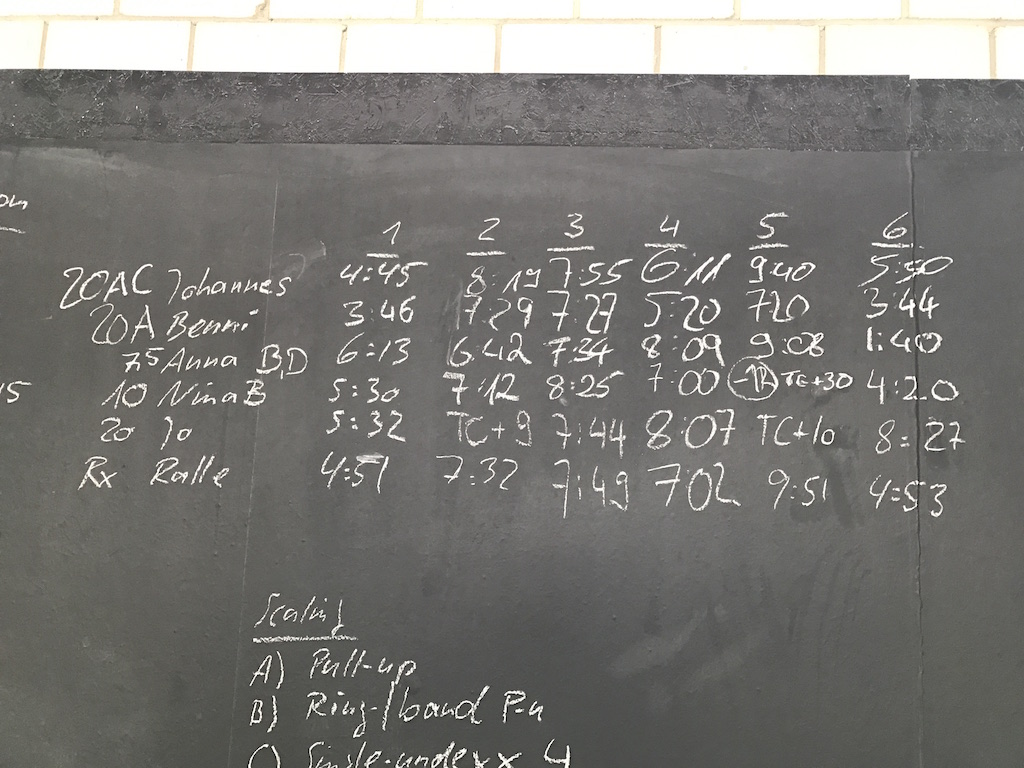 1 2 3 4 5 6
20AC Johannes 4:45 8:19 7:55 6:11 9:40 5:50
20A Benni 3:46 7:29 7:27 5:20 720 3:44
7,5 Anna B,D 6:13 6:42 7:34 8:09 9:08 1:40
15 10 Nina B 5:30 7:12 8:25 7:00 TC+30 4:20
20 Jo 5:32 TC+9 7:44 8:07 TC+10 8:27
Rx Ralle 4:51 7:32 7:49 702 9:51 4:53
Scaling
A) Pull-up
B) Ring-/band
C) Single-under x 4